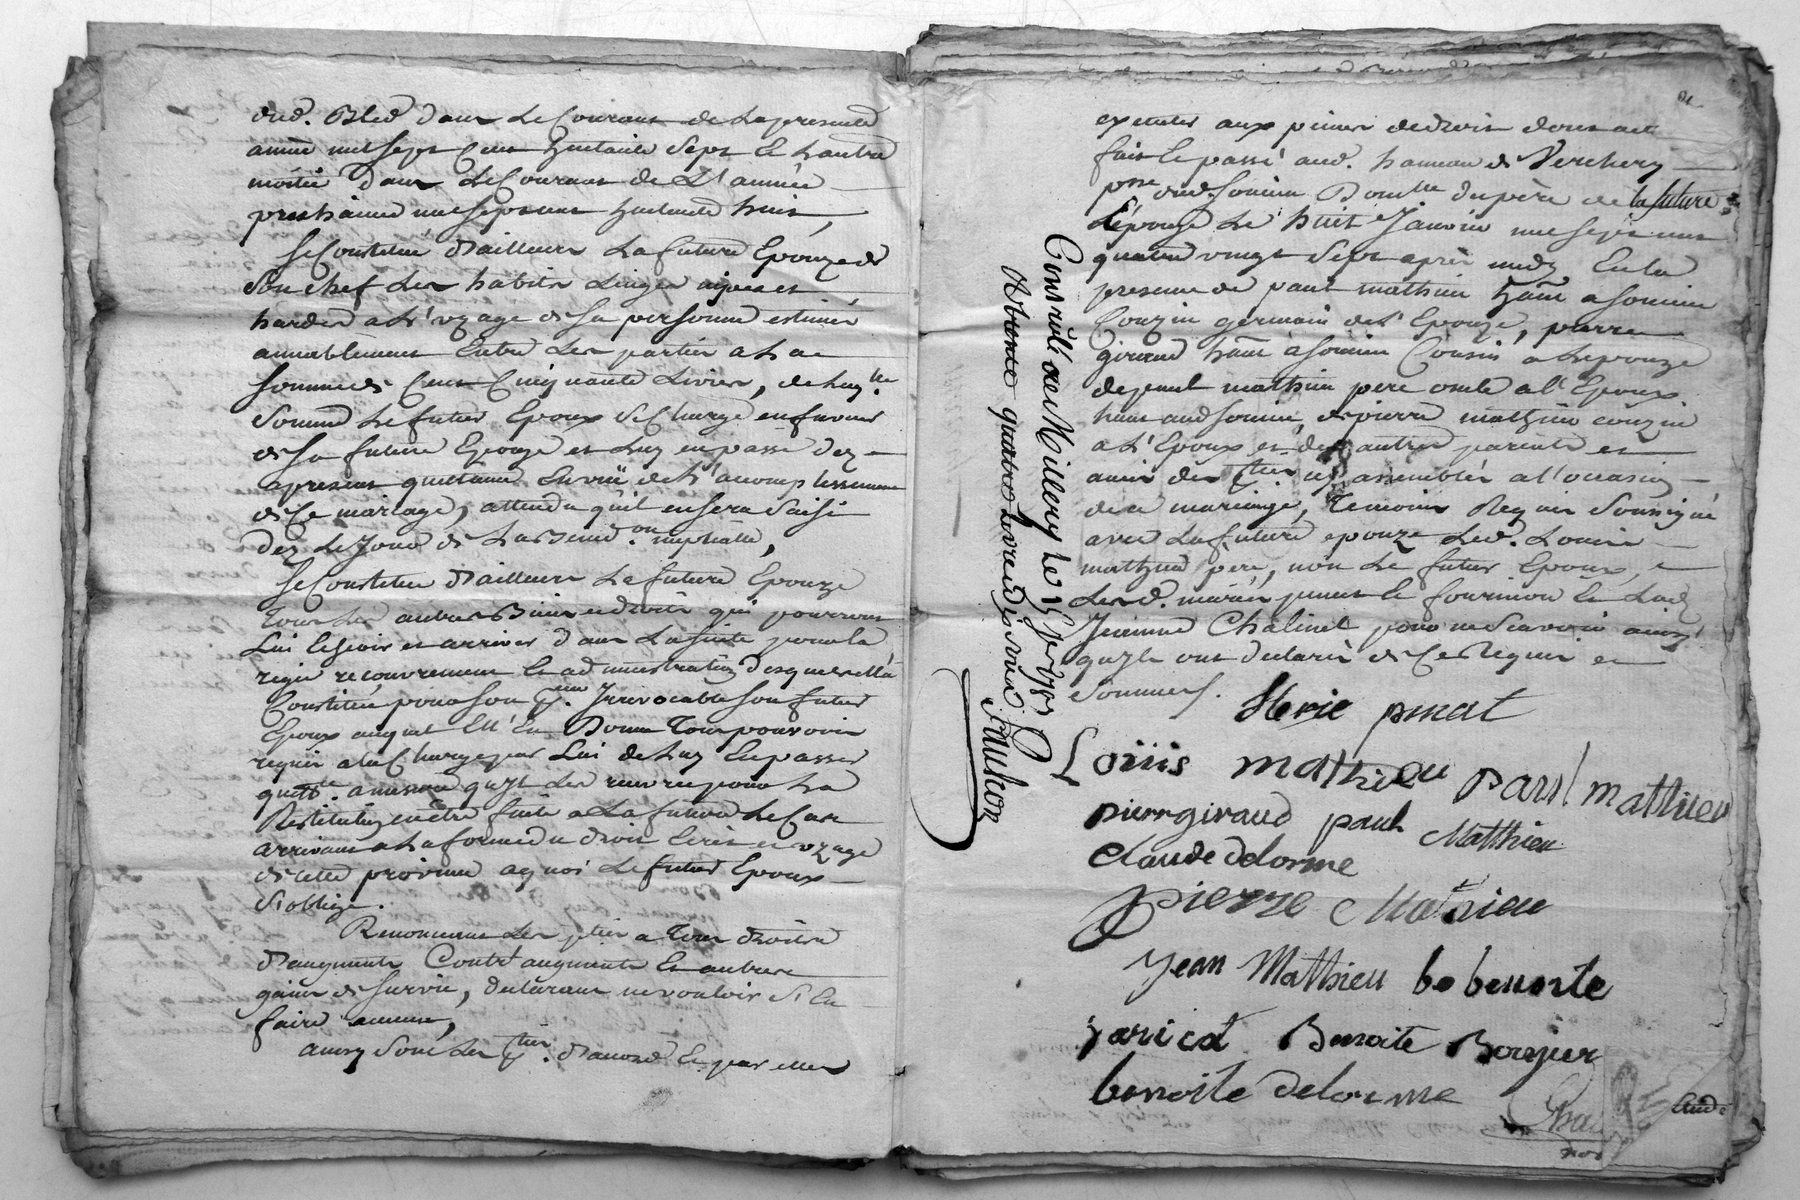 dud. Bled dans le Courant de la presente
année mil sept Cent huitante Sept et l'autre
moitié dans le Courant de L'année
prochaine mil sept cent huitante huit,
Se Constitue d'ailleurs La future Epouze de
Son Chef Les habits Linges nipes et
hardes a L'uzage de Sa personne estimés
amiablement Entre Les parties a La
Somme de Cent Cinquante Livres, de laq.lle
Somme Le futur Epoux Se Charge en faveur
de Sa future Epouze et Luy en passe dez
apresent quittance En vuë de L'accomplissement
de Ce mariage, attendu qu'il en Sera Saisi
dez Le Jour de La Bened.on nuptialle,
Se Constitue d'ailleurs La future Epouze
Tous Les autres Biens et droits qui pourront
Lui Echeoir et arriver dans La Suite pour la
regie recouvrement et administration desquels Elle
Constitue pour Son Irrevocable Son futur
Epoux auquel Elle En Donne Tout pouvoir
requis a la Charge par Lui de Luy En passer
quitt.ce a mesure qu'Il Les recevra pour La
Restitution en être faite a La future Le Cas
arrivant a La forme du droit Ecrit et uzage
de cette province a quoi Le futur Epoux
S'oblige.
Renoncent Les pties a Tous droits
d'augment Contr'augment Et autres
gains de Survie, declarant ne vouloir S'En
faire aucuns,
ainsy Sont Les d'accord Et par elles
executer aux peines de droit dont acte
fait Et passé aud. hameau de Verchery
psse dud. Soucieu Domlle du pere de la future
Epouze Le huit Janvier mil sept cent
quatre vingt Sept après midy En la
presence de paul mathieu hânt a Soucieu
Couzin germain de L'Epouze, pierre
giraud hânt a Soucieu Cousin a L'epouze
de jeant mathieu pere oncle a l'Epoux
hant aud Soucieu, de pierre mathieu couzin
a L'Epoux et des autres parents et
amis des assemblés a l'occasion
de ce mariage, Temoins Requis Soussignés
avec La future epouze Led. Louis
mathieu pere, non Le futur Epoux,
Jerienne Chalinel pour ne Scavoir ainsy
qu'Ils ont declarés de Ce Requis et
Sommés.
Conrollé a Millery Le 15 Je. 1787
Quatre Livres dix
Faulcon
pinat
Louis mathieu paul mathieu
pierre giraud paul Matthieu
Claude delorme
pierre Mathieu
Jean Matthieu be benoite
jaricot Benoite Bouzier
benoite delorme